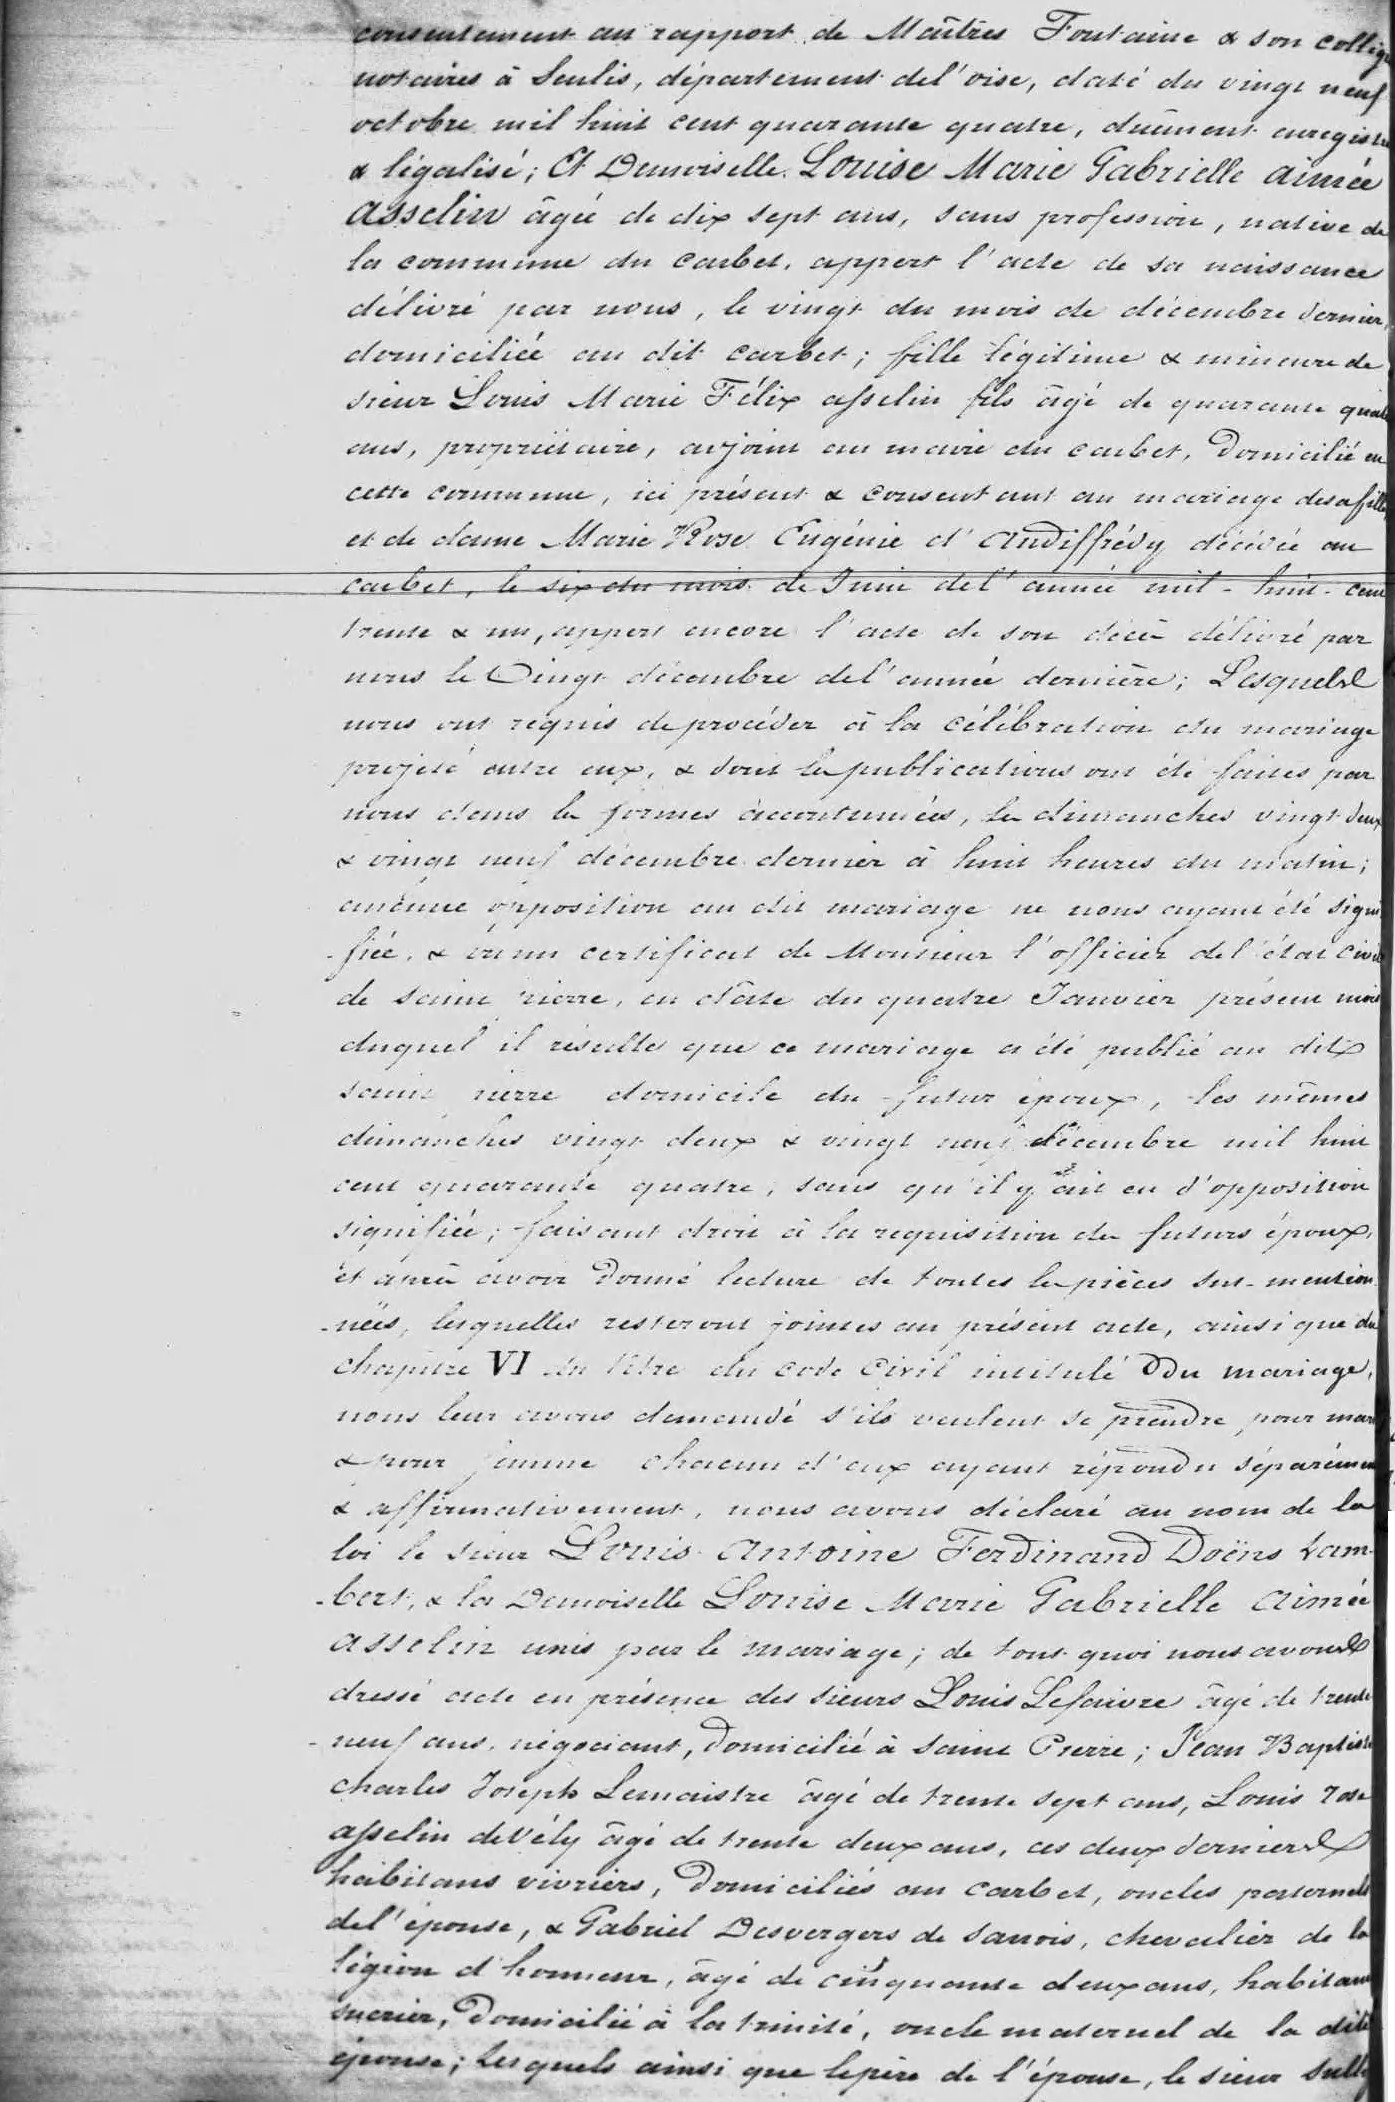 consentement au rapport de Maîtres Fontaine & son collègue
notaires à Senlis, département de l'oise, daté du vingt neuf
octobre mil huit cent quarante quatre, duëment enregistré
& légalisé; Et Demoiselle Louise Marie Gabrielle aimée
asselin âgée de dix sept ans, sans profession, native de
la commune du Carbet, appert l'acte de sa naissance
délivré par nous, le vingt du mois de décembre dernier,
domiciliée au dit carbet; fille légitime & mineure de
sieur Louis Marie Félix asselin fils âgé de quarante quatre
ans, propriétaire, adjoint au maire du carbet, domicilié en
cette commune, ici présent & consentant au mariage de sa fille
et de dame Marie Rose Eugénie d'Audiffrédy décédée au
carbet, le six du mois de Juin de l'année mil-huit-cent
trente & un, appert encore l'acte de son décès délivré par
nous le Vingt décembre de l'année dernière; Lesquels
nous ont requis de procéder à la célébration du mariage
projeté entre eux, & dont les publications ont été faites par
nous dans les formes accoutumées, les dimanches vingt deux
& vingt neuf décembre dernier à huit heures du matin;
aucune opposition au dit mariage ne nous ayant été signi
-fiée, & vu un certificat de Monsieur l'officier de l'état civil
de saint Pierre, en date du quatre Janvier présent mois
duquel il résulte que ce mariage a été publié au dit
saint Pierre domicile du futur époux, les mêmes
dimanches vingt deux & vingt neuf décembre mil huit
cent quarante quatre, sans qu'il y ait eu d'opposition
signifiée; faisant droit à la requisition des futurs époux,
et après avoir donné lecture de toutes les pièces sus-mention
-nées, lesquelles resteront jointes au présent acte, ainsi que du
chapitre VI du titre du code Civil intitulé Du mariage,
nous leur avons demandé s'ils veulent se prendre pour mari
& pour femme chacun d'eux ayant répondu séparément
& affirmativement, nous avons déclaré au nom de la
loi le sieur Louis Antoine Ferdinand Doëns Lam-
-bert, & la Demoiselle Louise Marie Gabrielle Aimée
Asselin unis par le mariage; de tout quoi nous avons
dressé acte en présence des sieurs Louis Lefaivre âgé de trente
-neuf ans, négociant, domicilié à Saint Pierre; Jean Baptiste
charles Joseph Lemaistre âgé de trente sept ans, Louis rose
asselin de Vély âgé de trente deux ans, ces deux derniers
habitans vivriers, domiciliés au carbet, oncles paternels
de l'épouse, & Gabriel Desvergers de Sanois, chevalier de la
légion d'honneur, âgé de cinquante deux ans, habitant
sucrier, domicilié à la trinité, oncle maternel de la dite
épouse; lesquels ainsi que le père de l'épouse, le sieur Sully